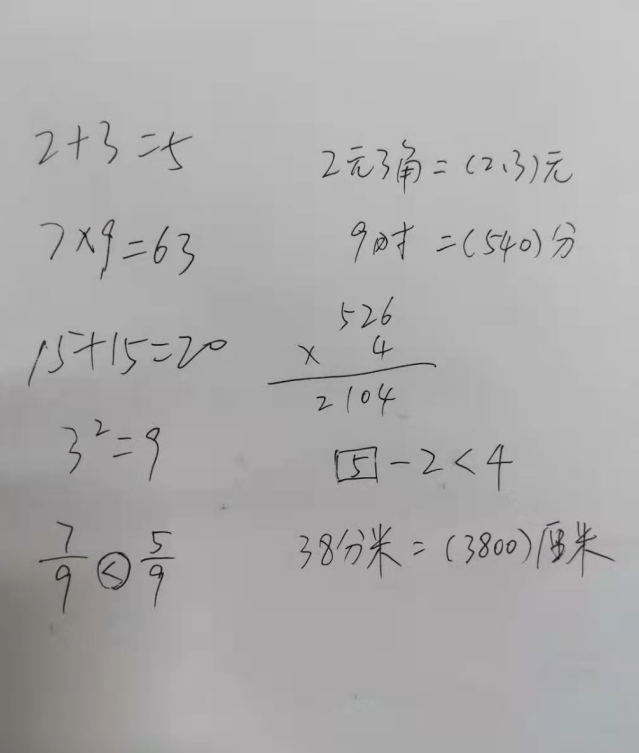 2+3=5
7×9=63
15+15=20
3²=9
7/9 < 5/9
2元3角=(2.3)元
9时=(540)分
526
× 4
2104
5-2<4
38分米=(3800)厘米